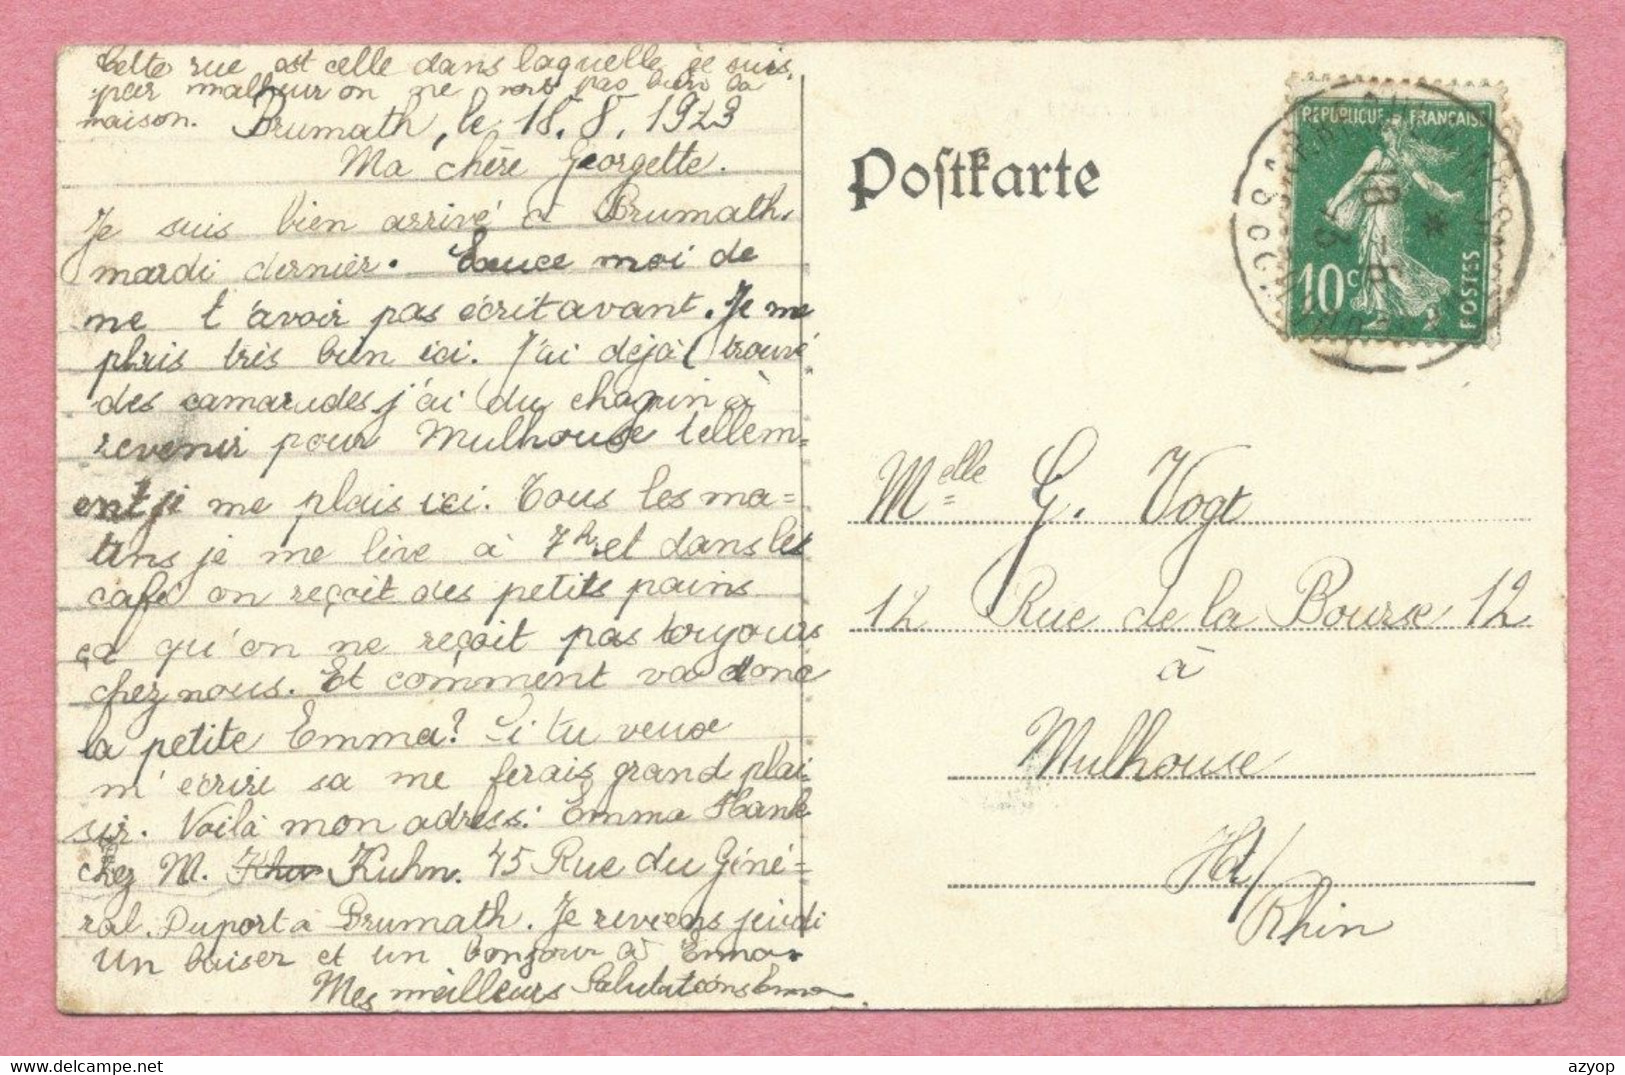 Cette rue est celle dans laquelle je suis,
par malheur on ne voit pas bien la
maison. Brumath, le 18. 8. 1923
Ma chère Georgette.
Je suis bien arrivé à Brumath
mardi dernièr. moi de
ne t'avoir pas écrit avant. Je me
plais très bien ici. J'ai déjà trouvé
des camarades j'ai du chagrin à
revenir pour Mulhouse tellem=
ent je me plais ici. Tous les ma=
tins je me lève à 7h et dans les
café on reçoit des petits pains
ça qu'on ne reçoit pas toujours
chez nous. Et comment va donc
la petite Emma? Si tu veux
m'écrire sa me ferais grand plai
sir. Voilà mon adress: Emma Hank
chez M. Kuhn. 45 Rue du Géné=
ral. Duport à Brumath. Je reviens jeudi
Un baiser et un bonjour à Emma.
Mes meilleurs Salutations Emma
Postkarte
REPUBLIQUE FRANÇAISE
10c
POSTES
Melle G. Vogt
12 Rue de la Bourse 12
à
Mulhouse
Ht/
Rhin
azyop